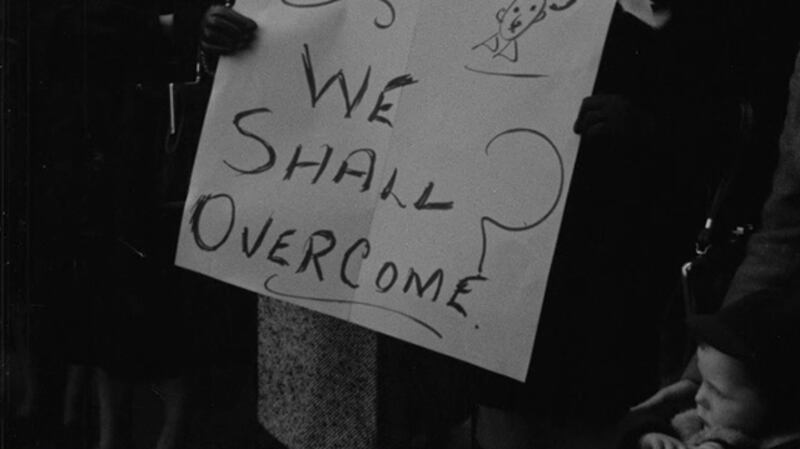 WE
SHALL
OVERCOME.
?